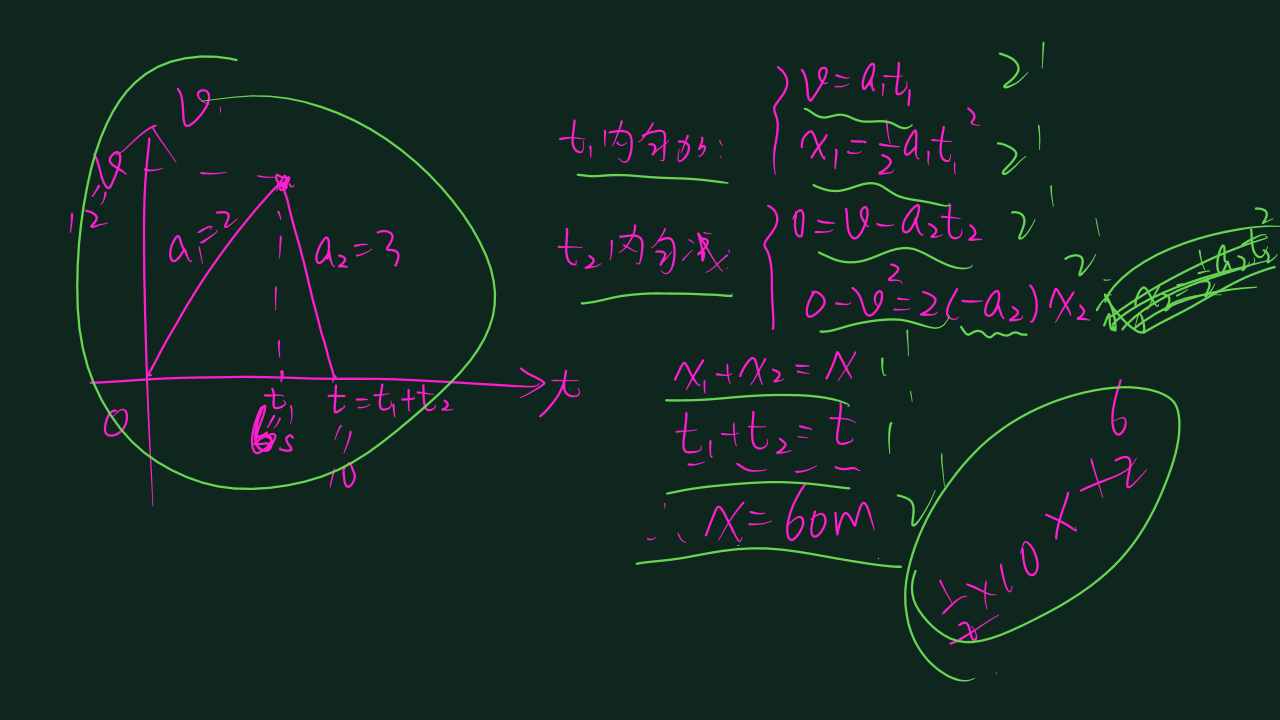 v
v
12
a₁=2
a₂=3
0
t₁
t=t₁+t₂
t
6s
10
t₁内匀加:
v=a₁t₁ 2'
x₁=½a₁t₁² 2'
t₂内匀减:
0=v-a₂t₂ 2'
0-v²=2(-a₂)x₂ 2'
x₁+x₂=x 1'
t₁+t₂=t 1'
∴ x=60m 2'
½×10×12
6